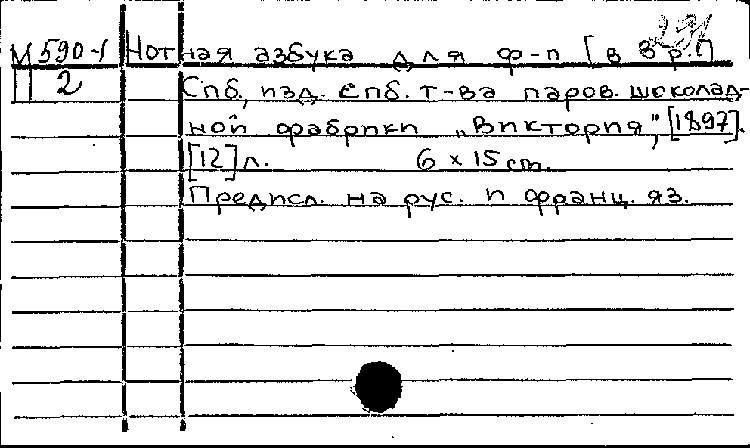 М 590-1 Нотная азбука для ф-п [в 3 р.]
2 Спб, изд. Спб. т-ва паров. шоколад-
ной фабрики „Виктория", [1897].
[12] л. 6 x 15 cm.
Предисл. на рус. и франц. яз.